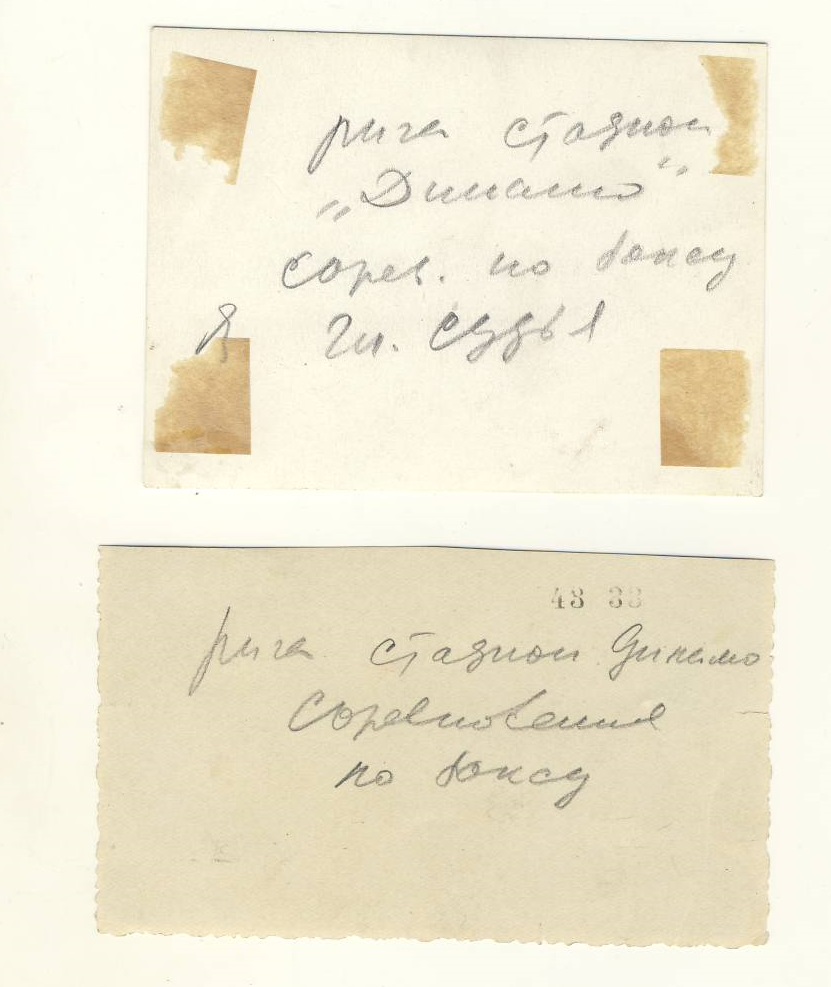 рига стадион
„Динамо"
сорев. по боксу
Я гл. судья
43 33
рига стадион Динамо
Соревнования
по боксу